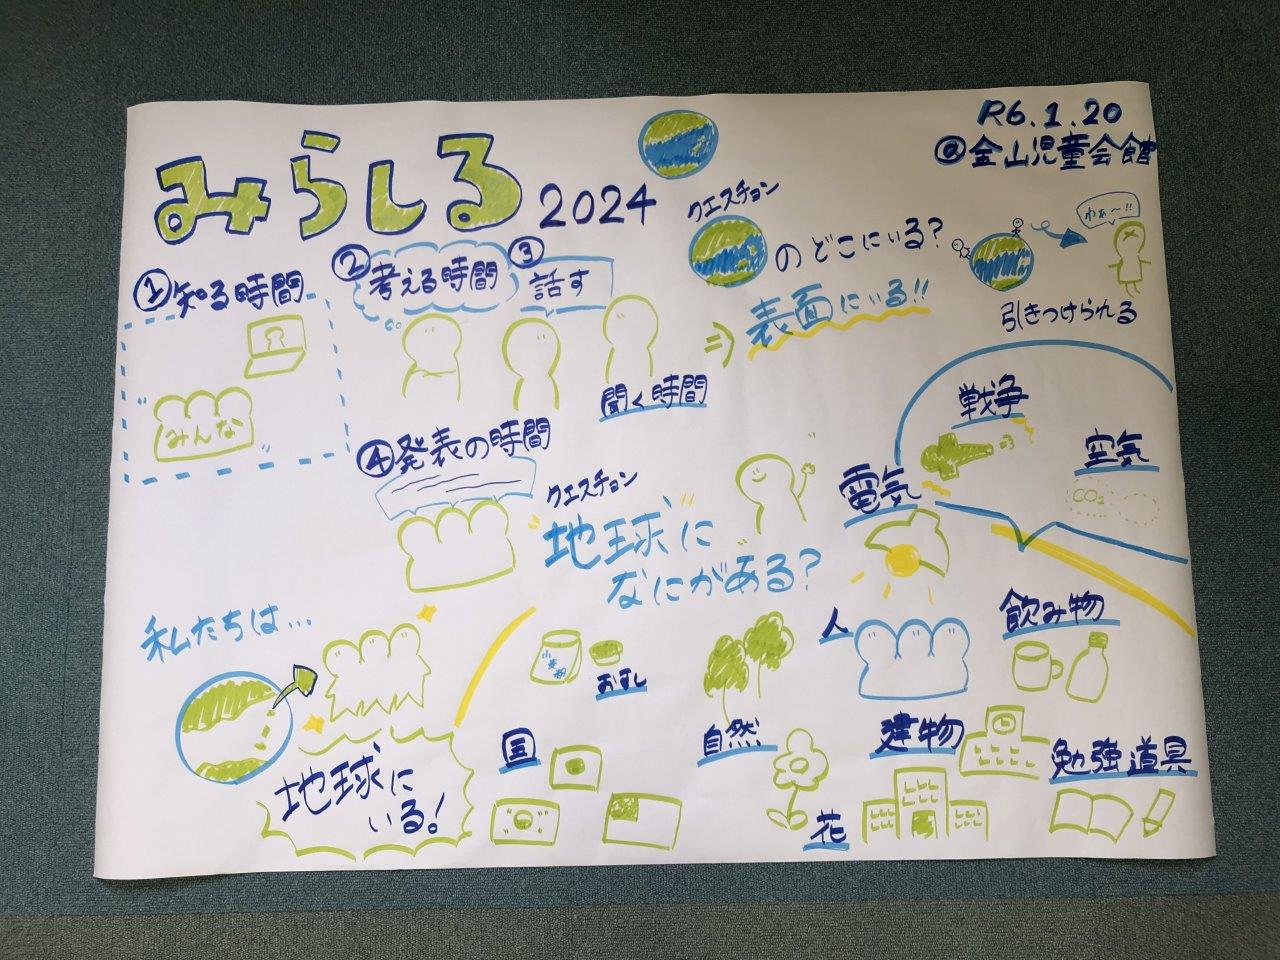 みらしる 2024
R6.1.20
@金山児童会館
①知る時間
みんな
②考える時間
③話す
聞く時間
④発表の時間
クエスチョン
のどこにいる?
⇒表面にいる!!
わぁ〜!!
引きつけられる
クエスチョン
"地球"に
なにがある?
私たちは…
地球に
いる!
戦争
空気
CO2
電気
人
飲み物
小麦粉
おすし
自然
国
花
建物
勉強道具